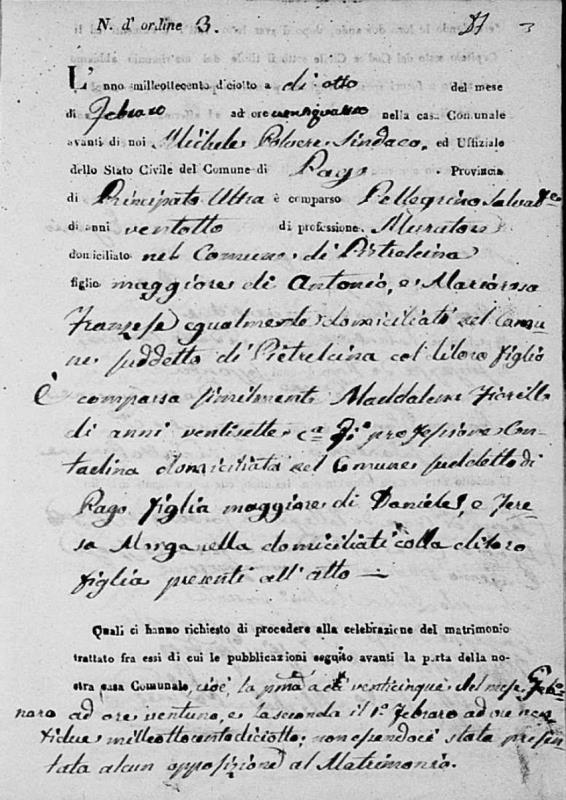 N. d' ordine 3. 3
L' anno milleottocento diciotto a dì otto del mese
di Febraro ad ore ventiquattro nella casa Comunale
avanti di noi Michele Polvere Sindaco, ed Uffiziale
dello Stato Civile del Comune di Pago Provincia
di Principato Ultra è comparso Pellegrino
di anni ventotto di professione Muratore
domiciliato nel Comune di Pietrelcina
figlio maggiore di Antonio, e Mariarosa
Franzese egualmente domiciliati nel Comu-
ne suddetto di Pietrelcina col di loro figlio
È comparsa similmente Maddalena Fiorillo
di anni ventisette di professione Con-
tadina domiciliata nel Comune suddetto di
Pago figlia maggiore di Daniele, e Tere-
sa Morganella domiciliati colla di loro
figlia presenti all' atto —
Quali ci hanno richiesto di procedere alla celebrazione del matrimonio
trattato fra essi di cui le pubblicazioni seguito avanti la porta della no-
stra casa Comunale, cioè, la pma a dì venticinque del mese Gen-
naro ad ore ventuno, e la seconda il 1º Febraro ad ore ven-
tidue milleottocentodiciotto; non essendoci stata presen-
tata alcun opposizione al Matrimonio.